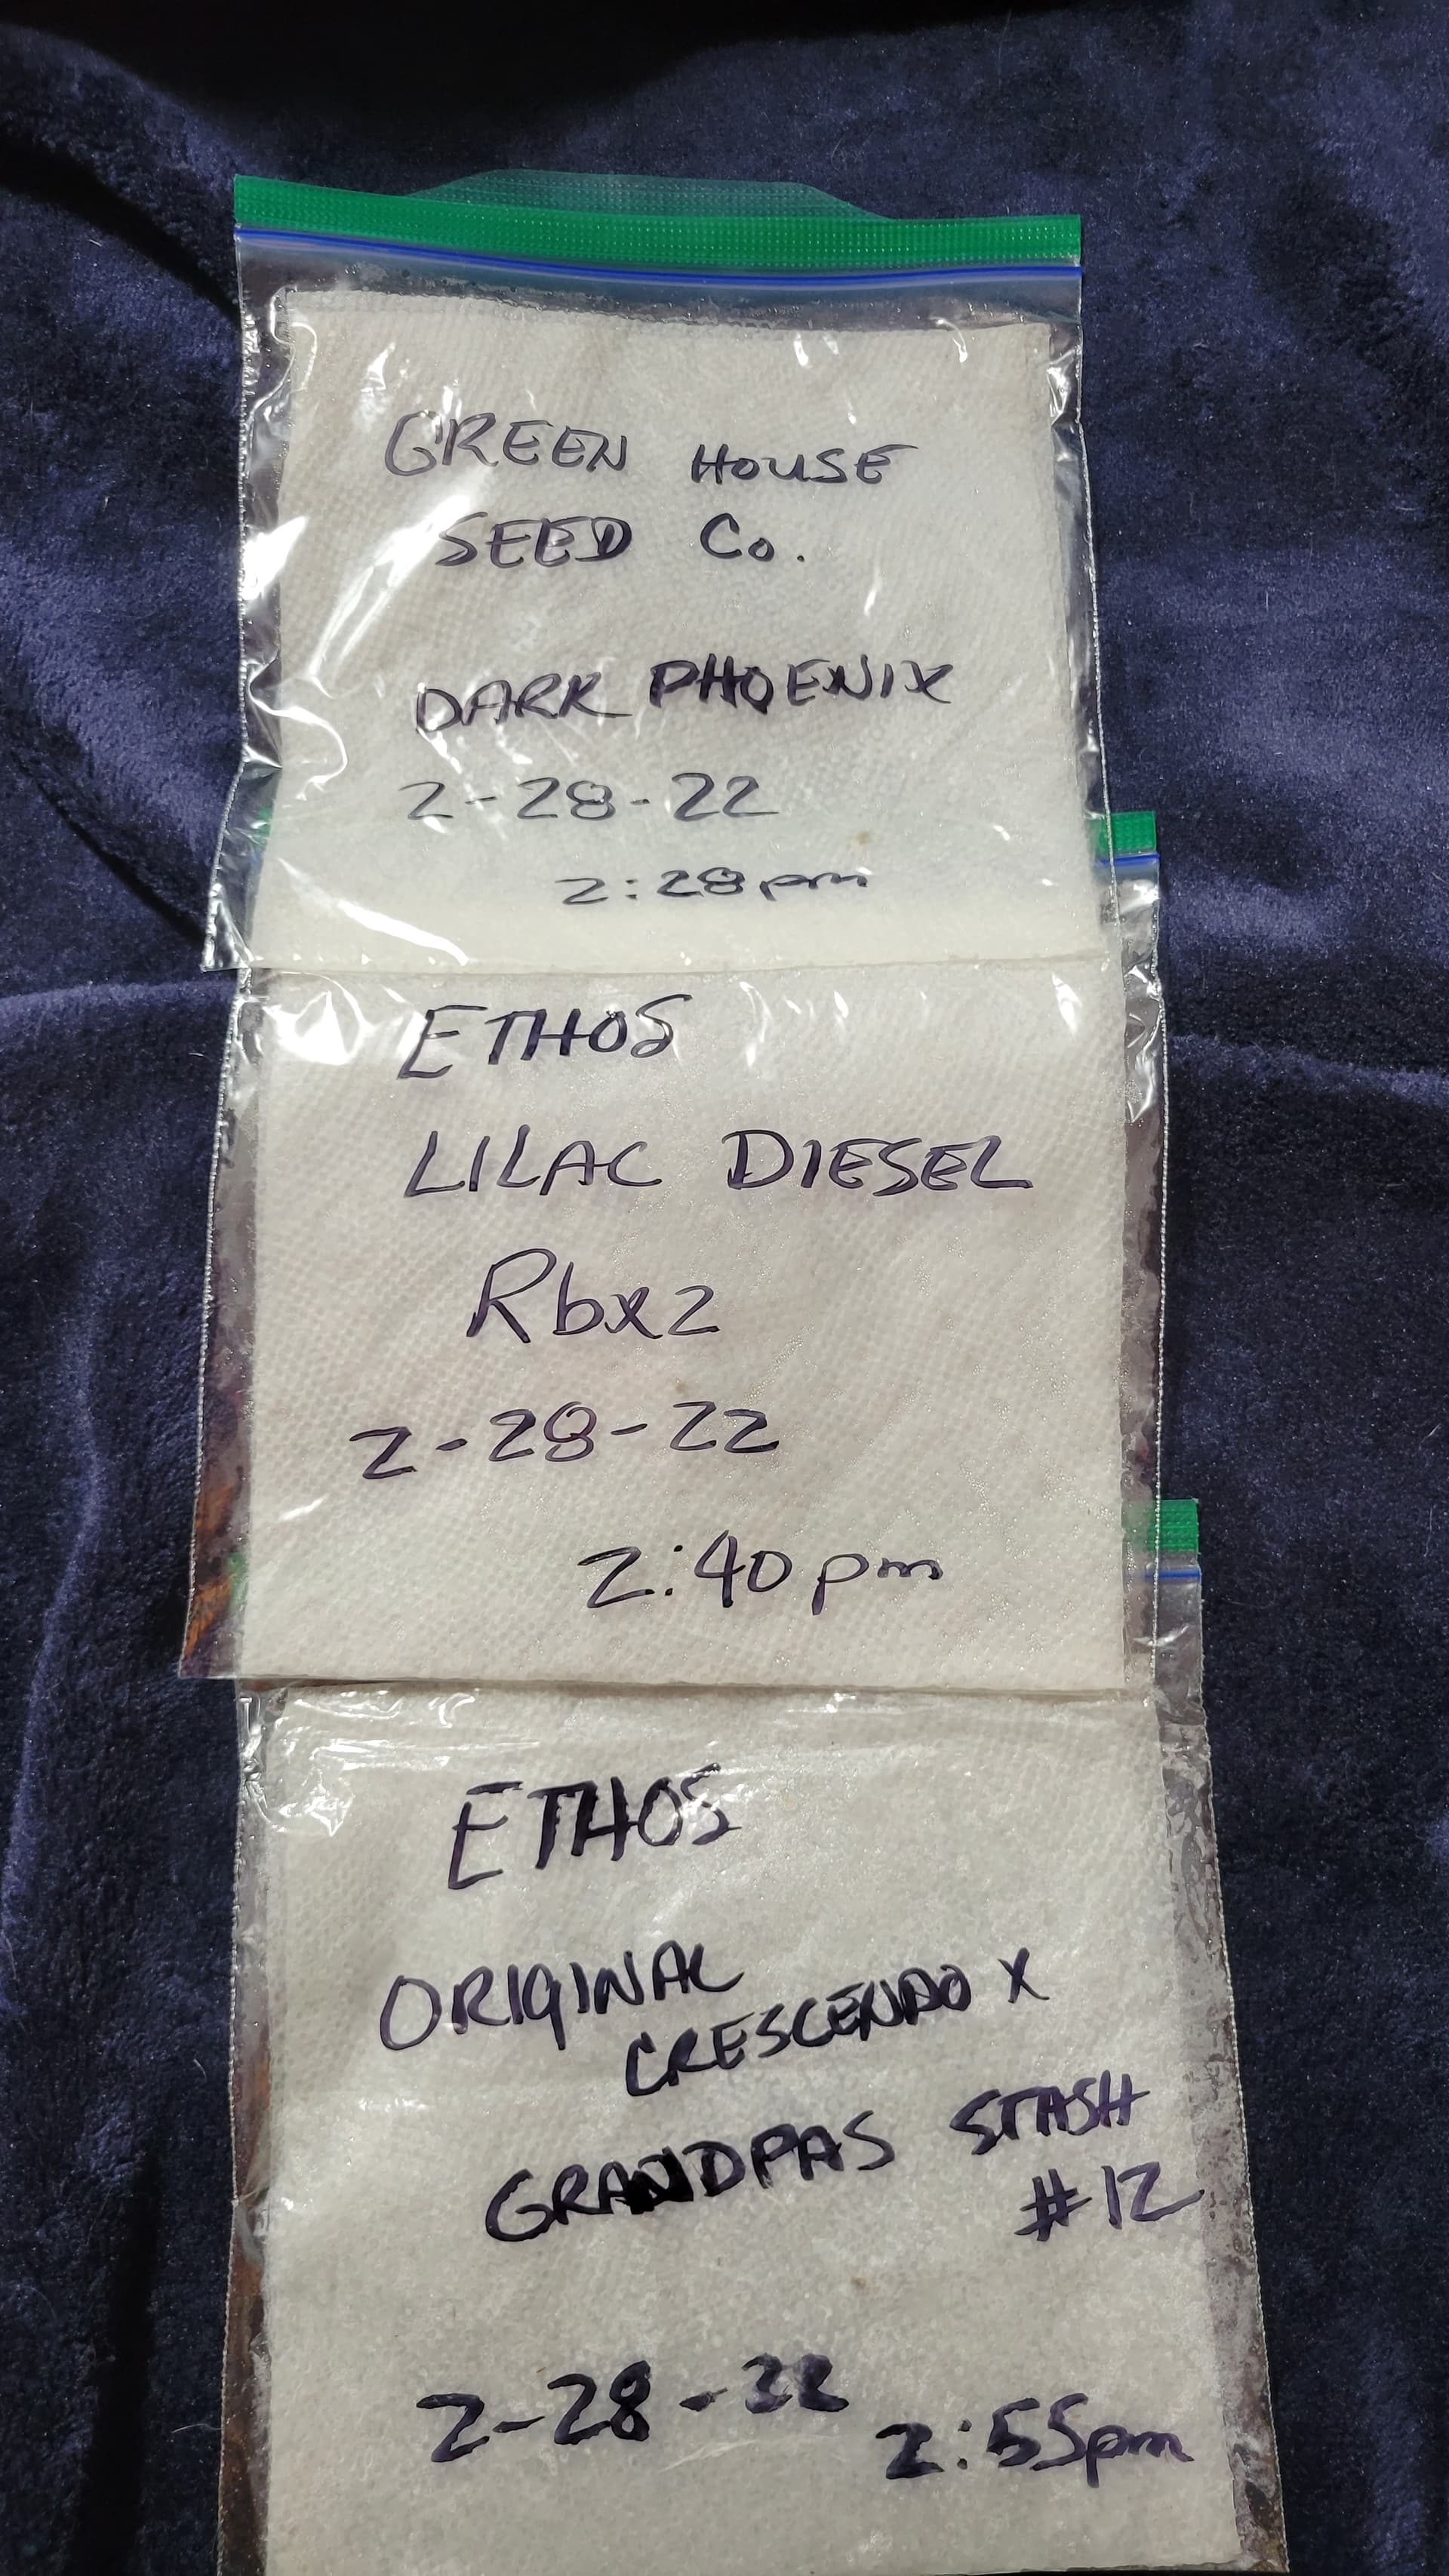 GREEN HOUSE
SEED Co.
DARK PHOENIX
2-28-22
2:28pm
ETHOS
LILAC DIESEL
Rbx2
2-28-22
2:40pm
ETHOS
ORIGINAL
CRESCENDO X
GRANDPAS STASH
#12
2-28-22
2:55pm